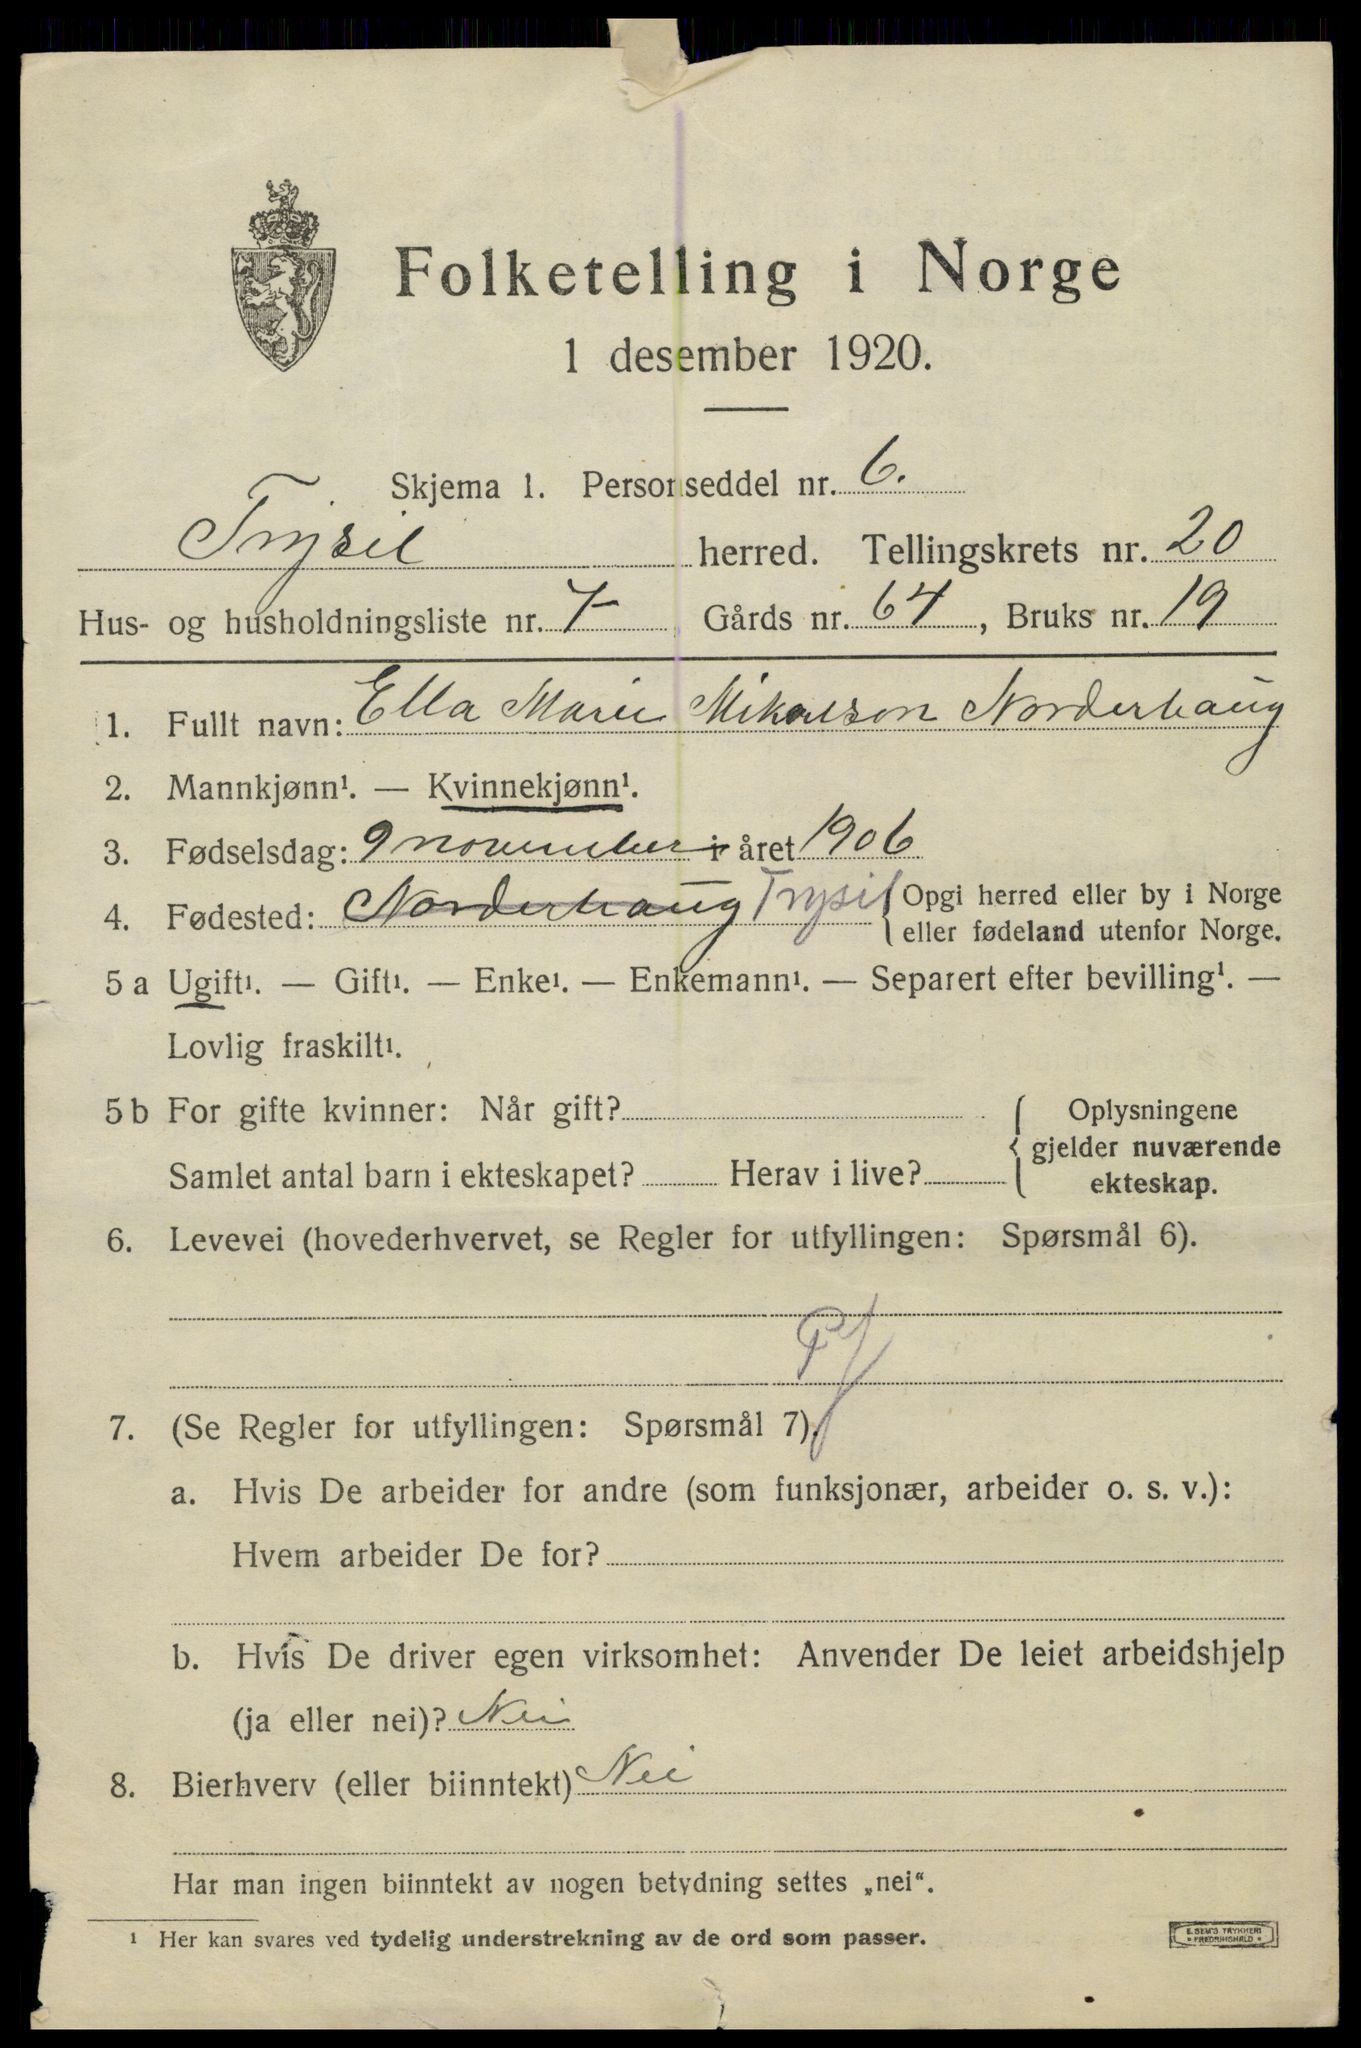 Folketelling i Norge
1 desember 1920.
Skjema 1. Personseddel nr. 6.
Trysil herred. Tellingskrets nr. 20
Hus- og husholdningsliste nr. 7, Gårds nr. 64, Bruks nr. 19
1. Fullt navn: Ella Marie Mikalson Norderhaug
2. Mannkjønn¹. — Kvinnekjønn¹.
3. Fødselsdag: 9 november i året 1906
4. Fødested: Norderhaug Trysil { Opgi herred eller by i Norge
eller fødeland utenfor Norge.
5 a Ugift¹. — Gift¹. — Enke¹. — Enkemann¹. — Separert efter bevilling¹. —
Lovlig fraskilt¹.
5 b For gifte kvinner: Når gift? { Oplysningene
gjelder nuværende
Samlet antal barn i ekteskapet? Herav i live? ekteskap.
6. Levevei (hovederhvervet, se Regler for utfyllingen: Spørsmål 6).
Pf
7. (Se Regler for utfyllingen: Spørsmål 7).
a. Hvis De arbeider for andre (som funksjonær, arbeider o. s. v.):
Hvem arbeider De for?
b. Hvis De driver egen virksomhet: Anvender De leiet arbeidshjelp
(ja eller nei)? Nei
8. Bierhverv (eller biinntekt) Nei
Har man ingen biinntekt av nogen betydning settes „nei“.
¹ Her kan svares ved tydelig understrekning av de ord som passer.
E. SEM'S TRYKKERI
• FREDRIKSHALD •